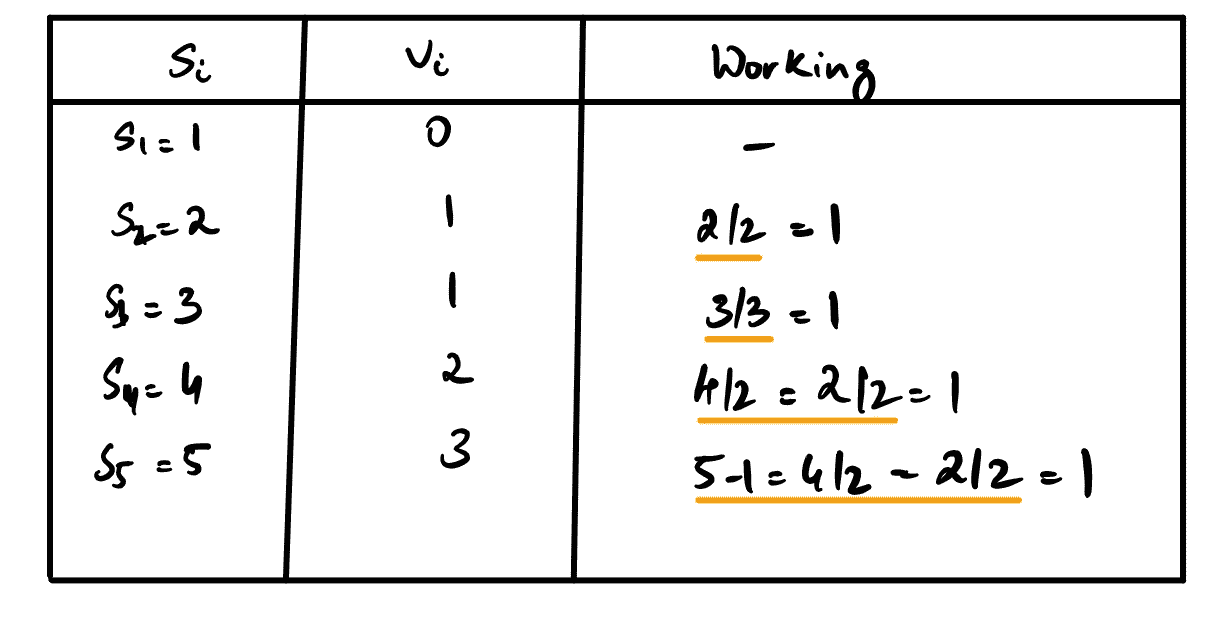 Si Vi Working
S1 = 1 0 -
S2 = 2 1 2/2 = 1
S3 = 3 1 3/3 = 1
S4 = 4 2 4/2 = 2/2 = 1
S5 = 5 3 5-1 = 4/2 - 2/2 = 1